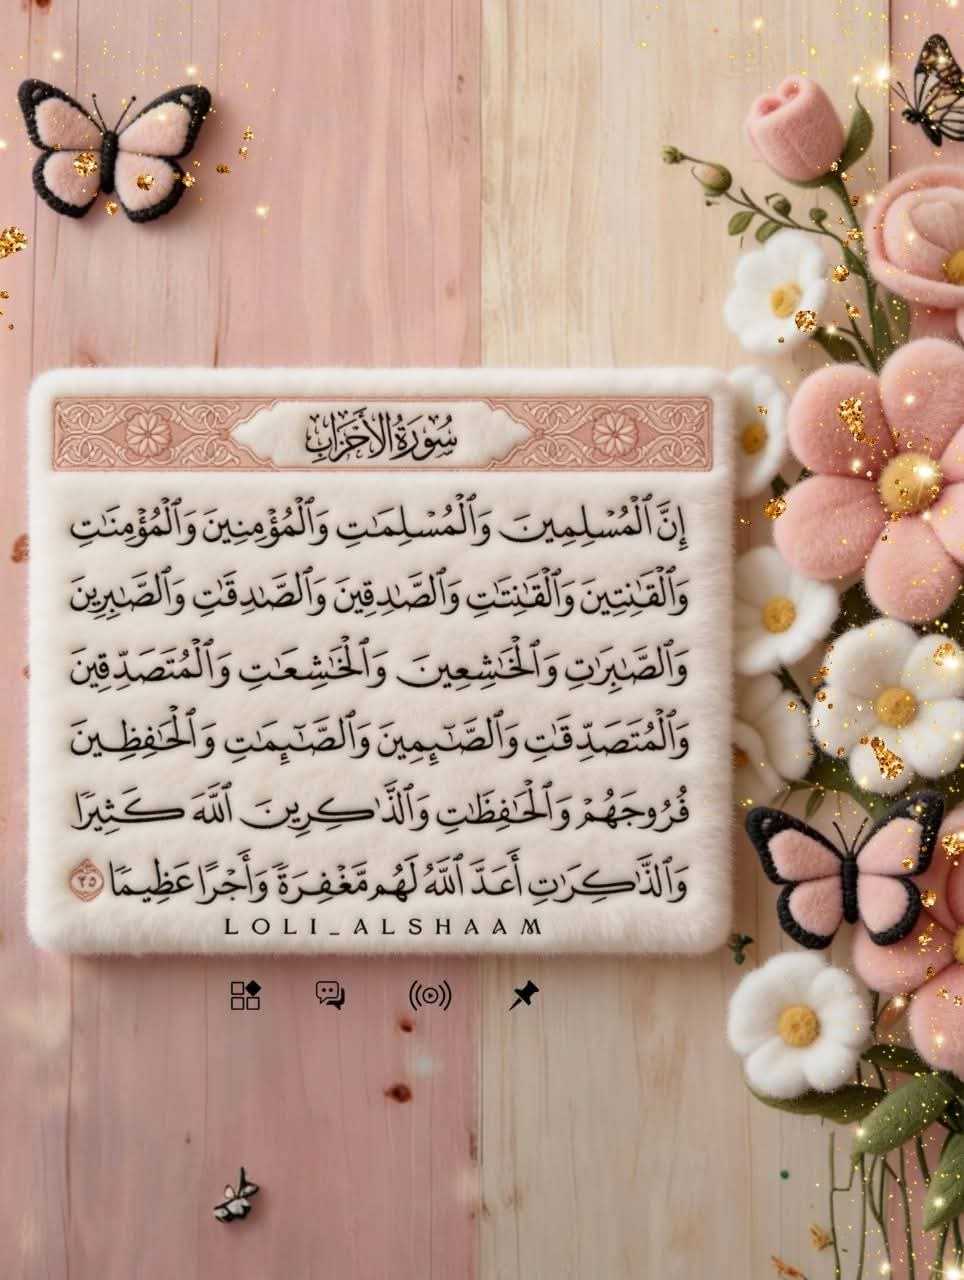 سُورَةُ الأَحْزَابِ
إِنَّ ٱلْمُسْلِمِينَ وَٱلْمُسْلِمَٰتِ وَٱلْمُؤْمِنِينَ وَٱلْمُؤْمِنَٰتِ
وَٱلْقَٰنِتِينَ وَٱلْقَٰنِتَٰتِ وَٱلصَّٰدِقِينَ وَٱلصَّٰدِقَٰتِ وَٱلصَّٰبِرِينَ
وَٱلصَّٰبِرَٰتِ وَٱلْخَٰشِعِينَ وَٱلْخَٰشِعَٰتِ وَٱلْمُتَصَدِّقِينَ
وَٱلْمُتَصَدِّقَٰتِ وَٱلصَّٰٓئِمِينَ وَٱلصَّٰٓئِمَٰتِ وَٱلْحَٰفِظِينَ
فُرُوجَهُمْ وَٱلْحَٰفِظَٰتِ وَٱلذَّٰكِرِينَ ٱللَّهَ كَثِيرًا
وَٱلذَّٰكِرَٰتِ أَعَدَّ ٱللَّهُ لَهُم مَّغْفِرَةً وَأَجْرًا عَظِيمًا ٣٥
LOLI_ALSHAAM